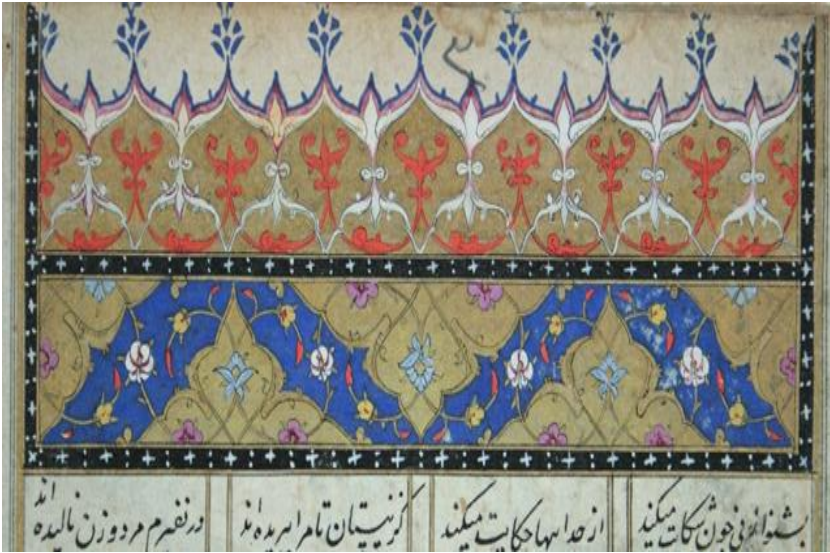 بشنو از نی چون شکایت میکند از جداییها حکایت میکند کز نیستان تا مرا ببریده اند در نفیرم مرد و زن نالیده اند